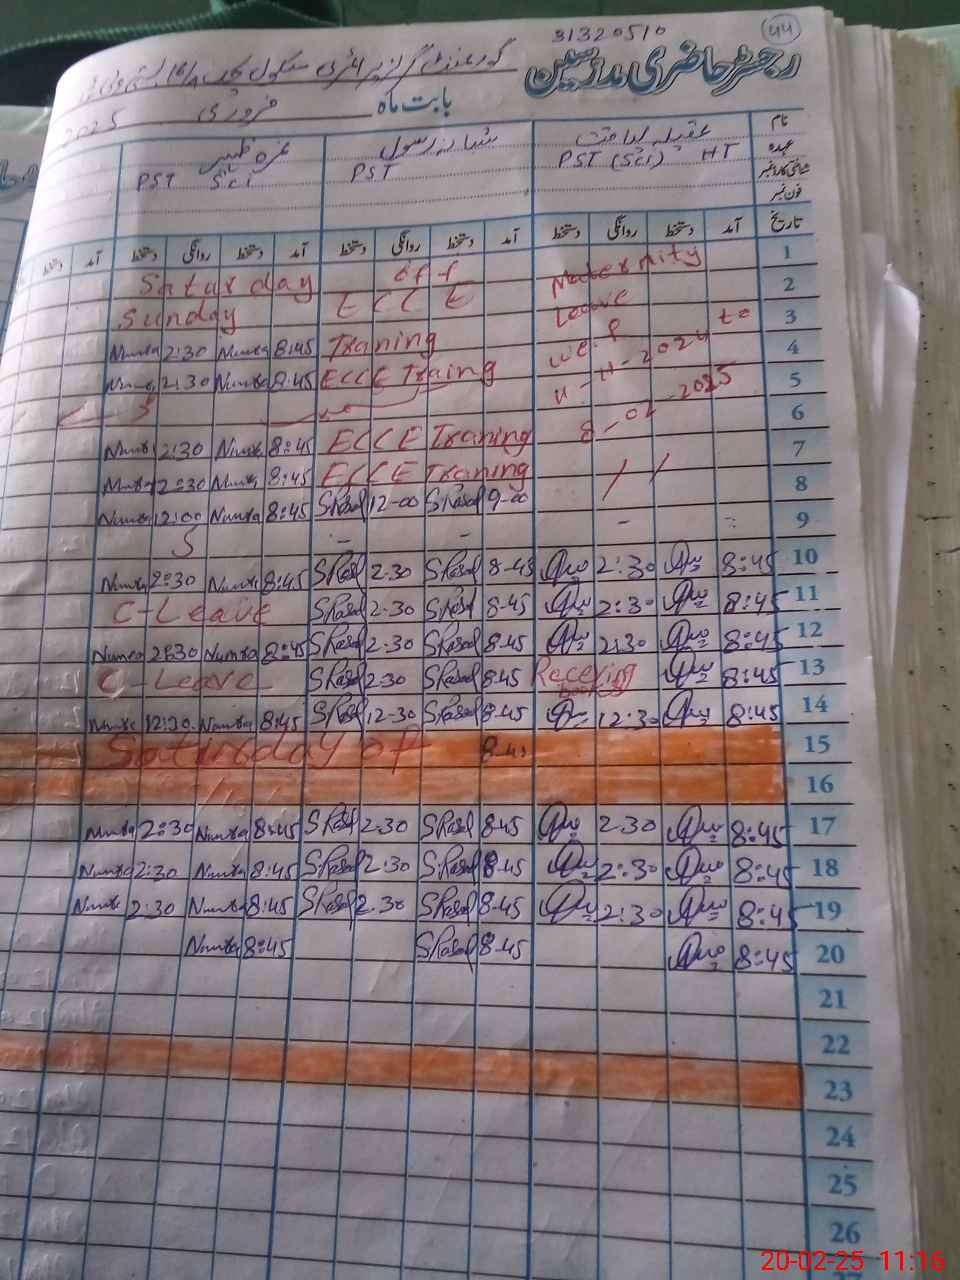 44
31320510
رجسٹر حاضری مدرسین
گورنمنٹ گرلز پرائمری سکول چک
بابت ماہ فروری 2025
نام
عہدہ PST (Sci) HT PST شاہانہ رسول PST Sci
شناختی کارڈ نمبر
فون نمبر
تاریخ آمد دستخط روانگی دستخط آمد دستخط روانگی دستخط آمد دستخط روانگی دستخط آمد دستخط
1 Maternity off Saturday
2 Leave ECCE Sunday
3 w.e.f Traning 8:45 Numra 2:30 Numra
4 11-11-2024 to ECCE Traing 8:45 Numra 2:30 Numra
5 S
6 8-02-2025 ECCE Traning 8:45 Numra 2:30 Numra
7 / / ECCE Traning 8:45 Numra 2:30 Numra
8 9-00 SRasol 12-00 SRasol 8:45 Numra 12:00 Numra
9 - - - S
10 8:45 2:30 8-45 SRasol 2.30 SRasol 8:45 Numra 2:30 Numra
11 8:45 2:30 8-45 SRasol 2.30 SRasol C-Leave
12 8:45 2:30 8-45 SRasol 2.30 SRasol 8:45 Numra 2:30 Numra
13 8:45 Receving books 8.45 SRasol 2.30 SRasol C-Leave
14 8:45 12:30 8-45 SRasol 12-30 SRasol 8:45 Numra 12:30 Numra
15 8-45 Saturday of
16
17 8:45 2.30 8.45 SRasol 2.30 SRasol 8:45 Numra 2:30 Numra
18 8:45 2:30 8-45 SRasol 2.30 SRasol 8:45 Numra 2:30 Numra
19 8:45 2:30 8-45 SRasol 2.30 SRasol 8:45 Numra 2:30 Numra
20 8:45 8-45 SRasol 8:45 Numra
21
22
23
24
25
26
20-02-25 11:16